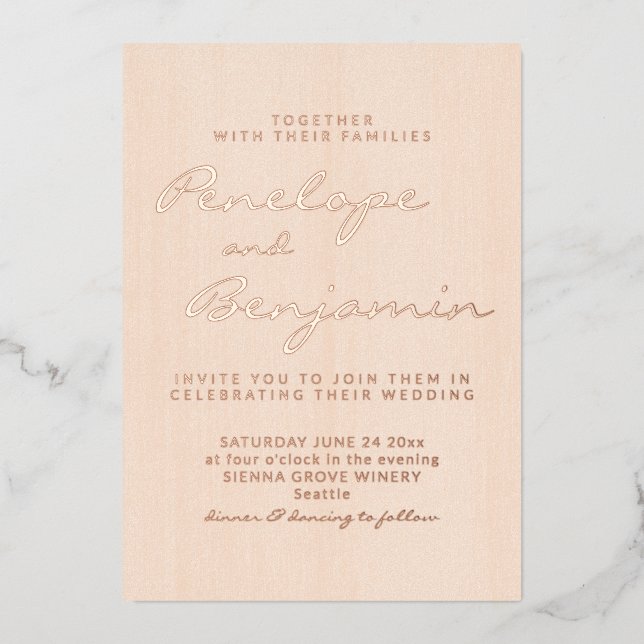 TOGETHER
WITH THEIR FAMILIES
Penelope
and
Benjamin
INVITE YOU TO JOIN THEM IN
CELEBRATING THEIR WEDDING
SATURDAY JUNE 24 20xx
at four o'clock in the evening
SIENNA GROVE WINERY
Seattle
dinner & dancing to follow